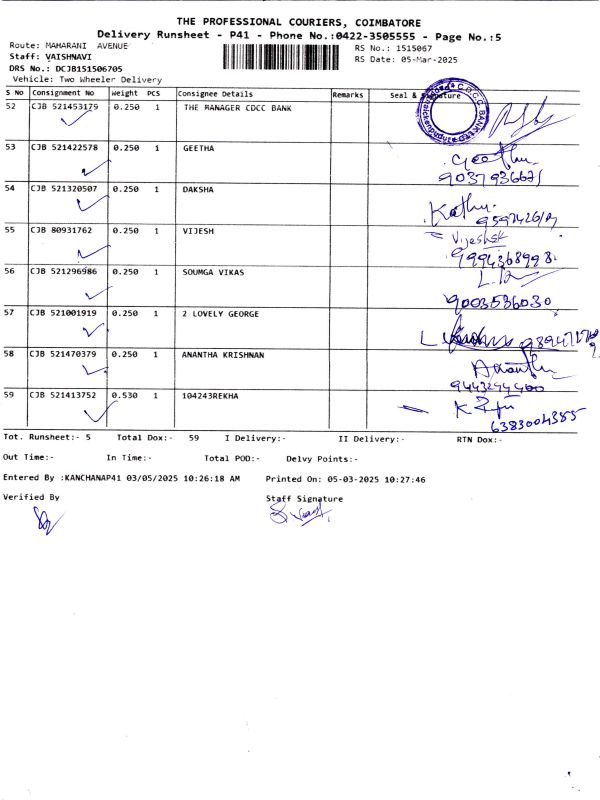 THE PROFESSIONAL COURIERS, COIMBATORE
Delivery Runsheet - P41 - Phone No.:0422-3505555 - Page No.:5
Route: MAHARANI AVENUE
RS No.: 1515067
Staff: VAISHNAVI
RS Date: 05-Mar-2025
DRS No.: DCJB151506705
Vehicle: Two Wheeler Delivery
S No Consignment No Weight PCS Consignee Details Remarks Seal & Signature
52 CJB 521453179 0.250 1 THE MANAGER CDCC BANK
53 CJB 521422578 0.250 1 GEETHA
Geetha.
9037936671
54 CJB 521320507 0.250 1 DAKSHA
Kathu.
55 CJB 80931762 0.250 1 VIJESH
Vijeshsk
9994368998
56 CJB 521296986 0.250 1 SOUMGA VIKAS
9003536030
57 CJB 521001919 0.250 1 2 LOVELY GEORGE
58 CJB 521470379 0.250 1 ANANTHA KRISHNAN
Ananthu
9443294400
59 CJB 521413752 0.530 1 104243REKHA
6383004385
Tot. Runsheet:- 5 Total Dox:- 59 I Delivery:- II Delivery:- RTN Dox:-
Out Time:- In Time:- Total POD:- Delvy Points:-
Entered By :KANCHANAP41 03/05/2025 10:26:18 AM Printed On: 05-03-2025 10:27:46
Verified By Staff Signature